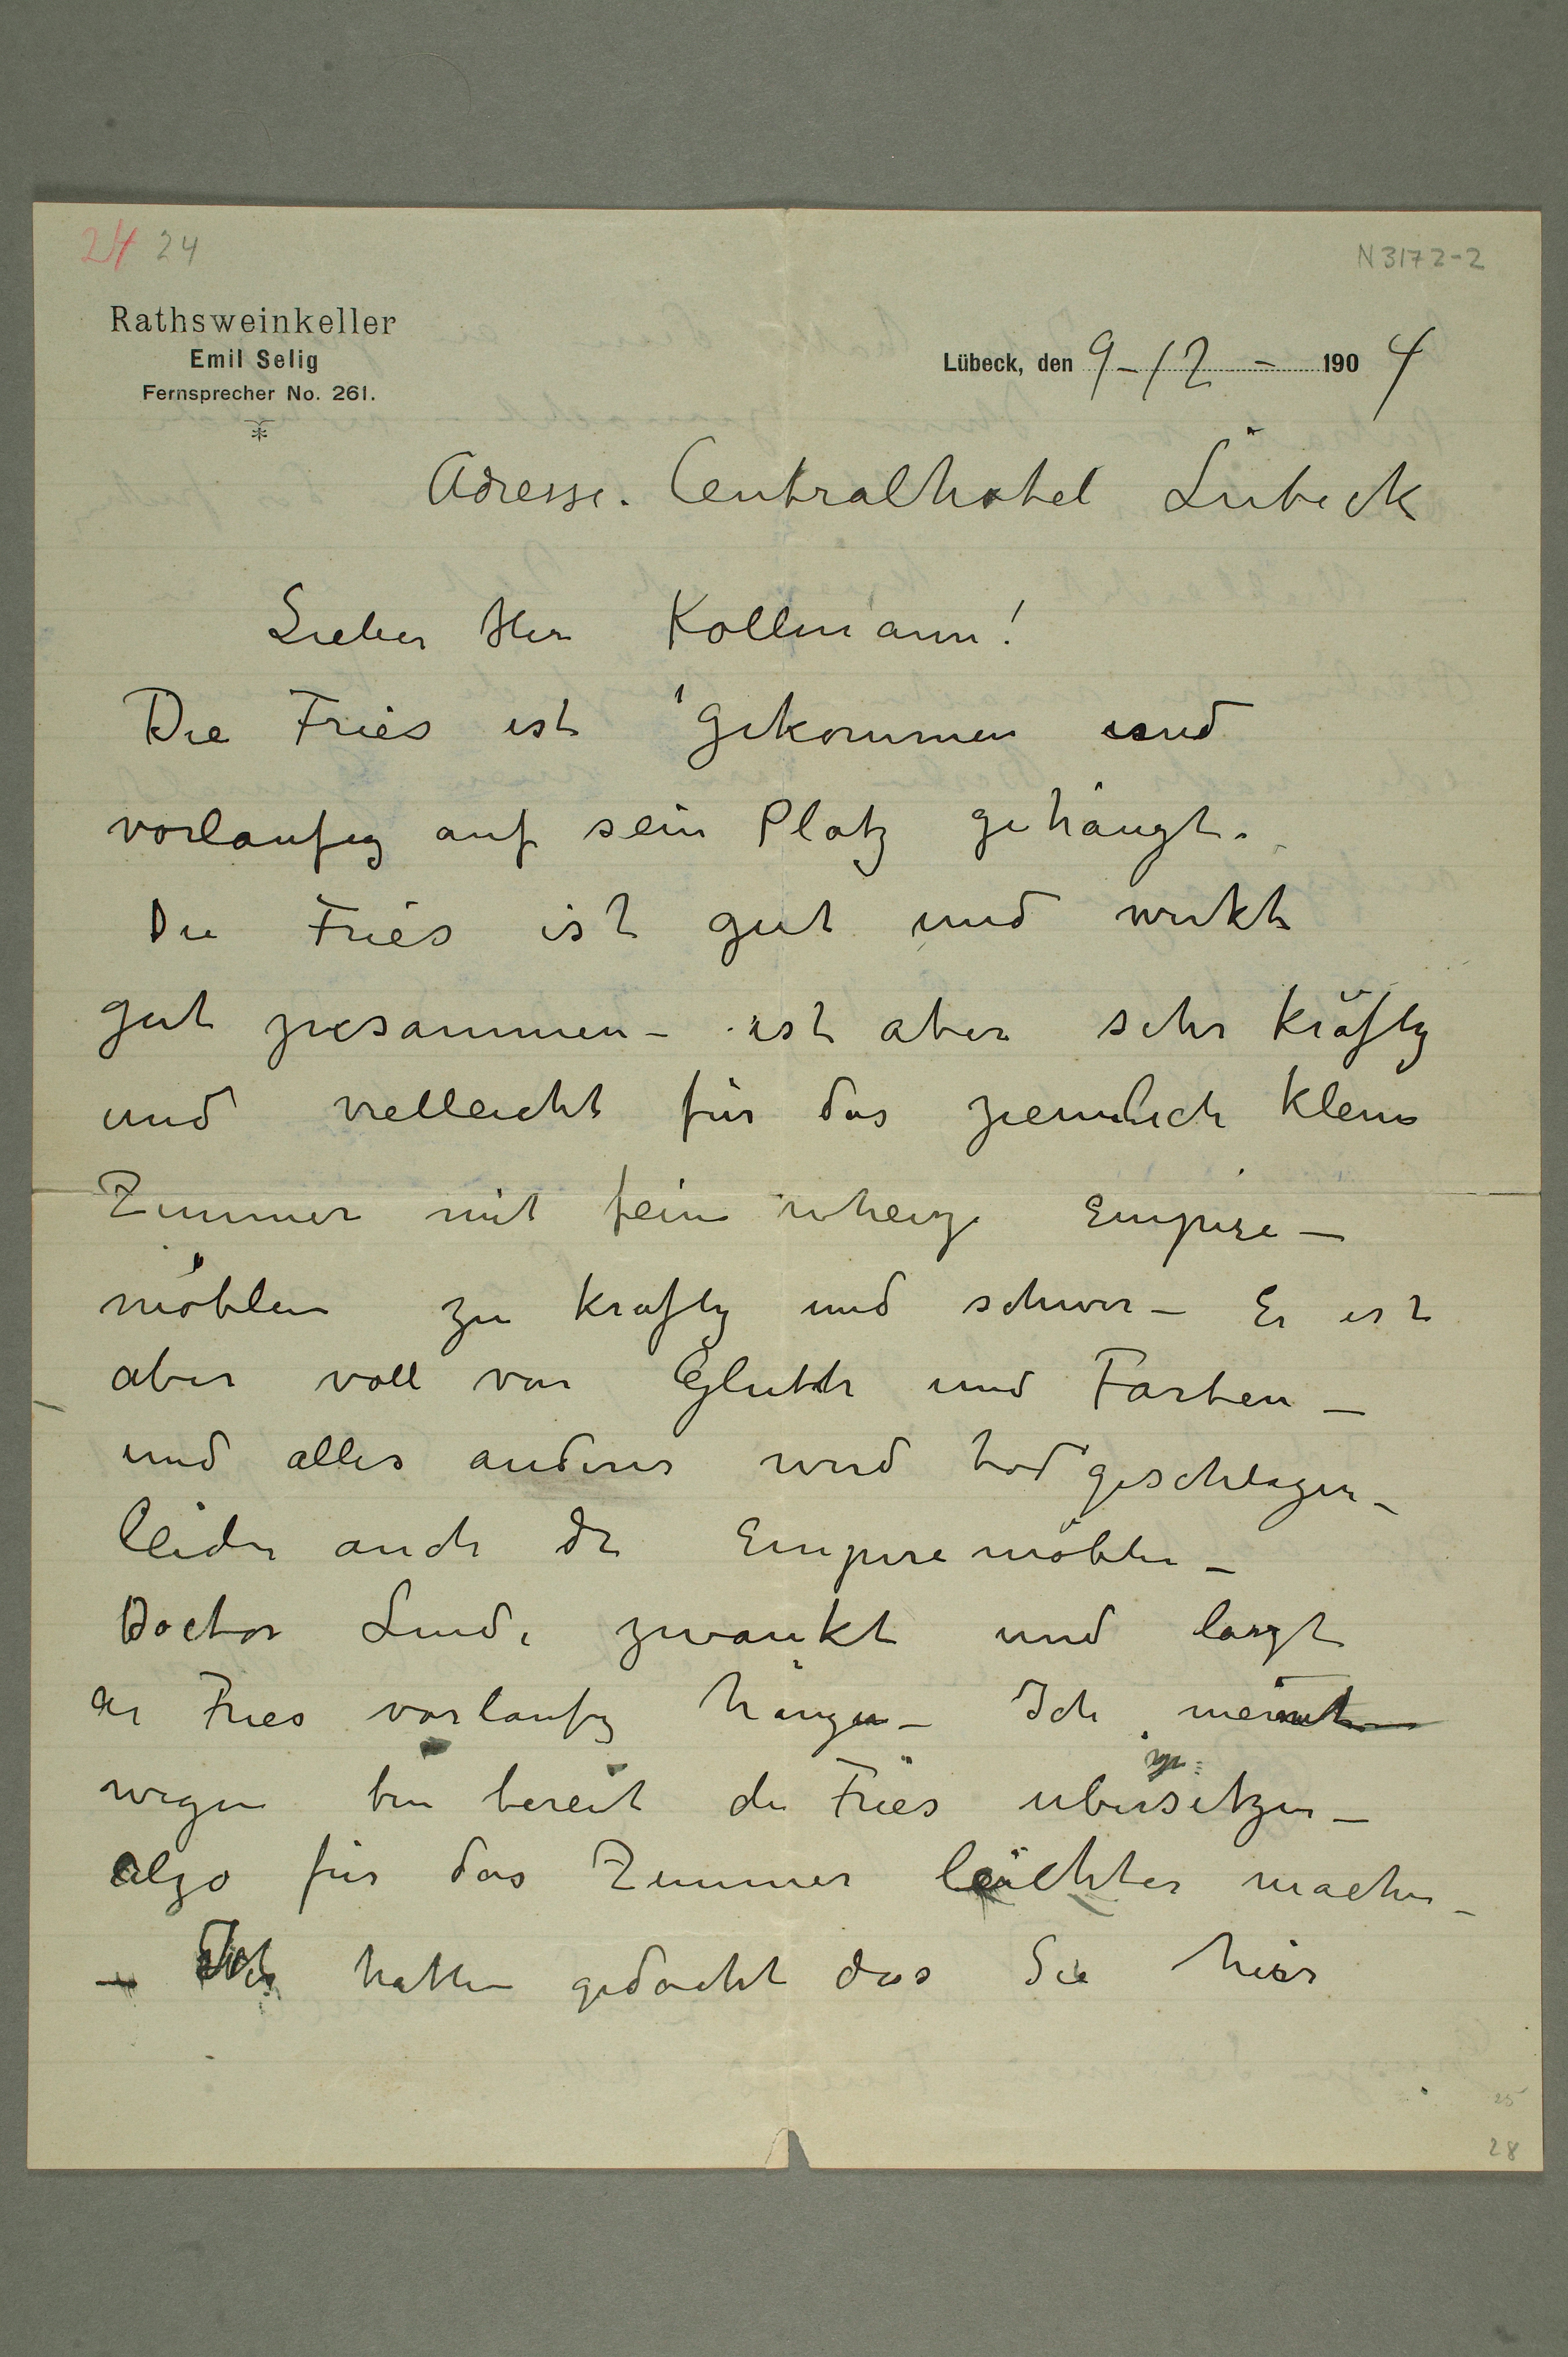 24 24
N 3172-2
Rathsweinkeller
Emil Selig
Fernsprecher No. 261.
Lübeck, den 9-12-1904
Adresse. Centralhotel Lübeck
Lieber Herr Kollmann!
Die Fries ist gekommen und
vorlaufig auf sein Platz gehängt.
Die Fries ist gut und wirkt
gut zusammen – ist aber sehr kräftig
und vielleicht für das ziemlich kleine
Zimmer mit feine Empire –
möblen zu kraftig und schwer – Er ist
aber voll von Gluth und Farben –
und alles anderes wird todgeschlagen –
leider auch die Empiremöblen –
Doctor Linde zwankt und laszt
der Fries vorlaufig hängen – Ich meinet
wegen bin bereit die Fries übersetzen –
also für das Zimmer leichter machen –
– Wir hatten gedacht das Sie hier
25
28